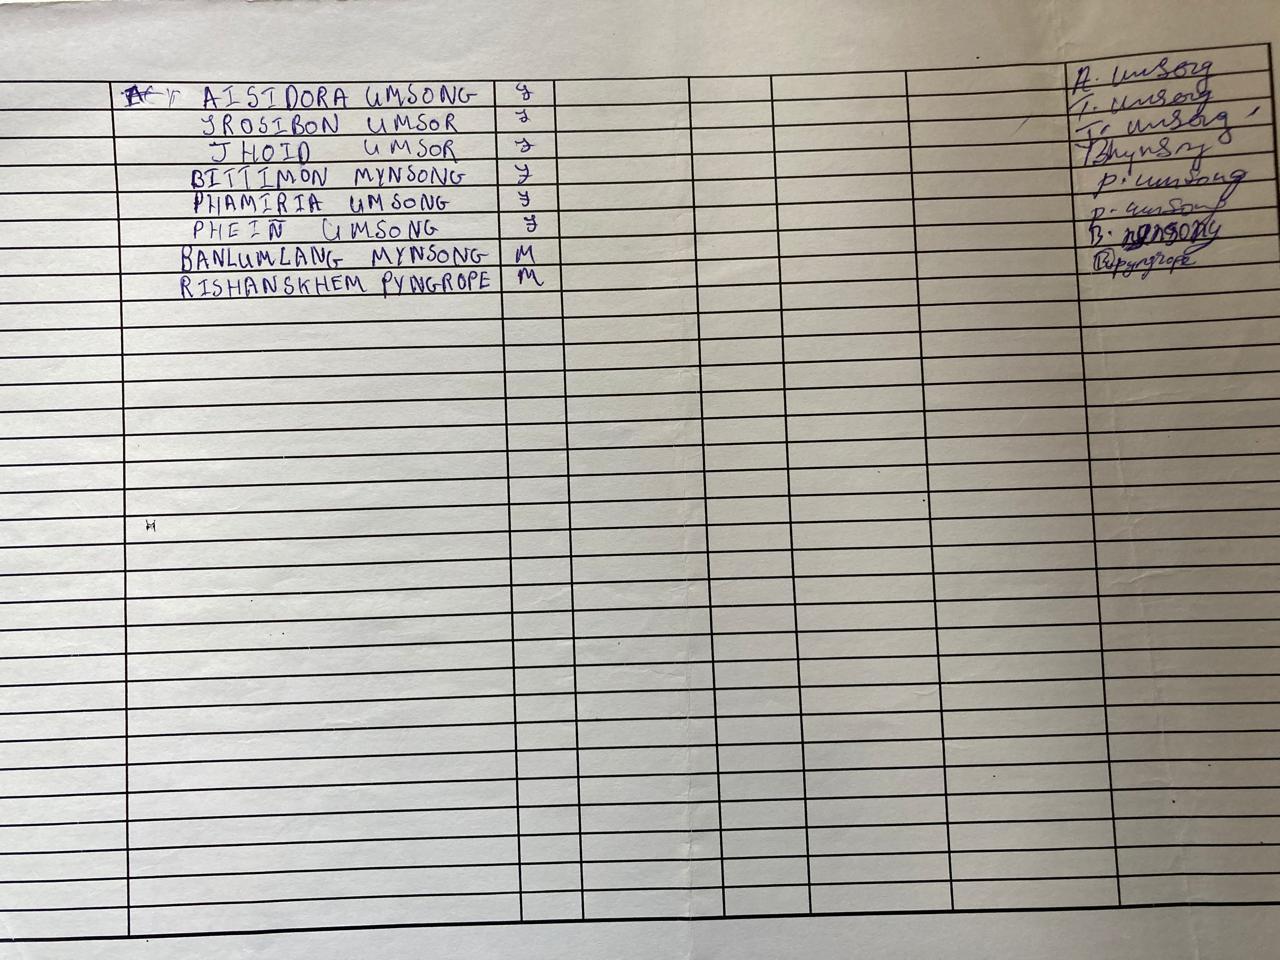 AISIDORA UMSONG F A. umsong
TROSIBON UMSOR F T. umsong
JHOID UMSOR F T. umsong
BITTIMON MYNSONG F
PHAMIRIA UMSONG F P. umsong
PHEIÑ UMSONG F P. umsong
BANLUMLANG MYNSONG M B. mynsong
RISHANSKHEM PYNGROPE M Rpyngrope